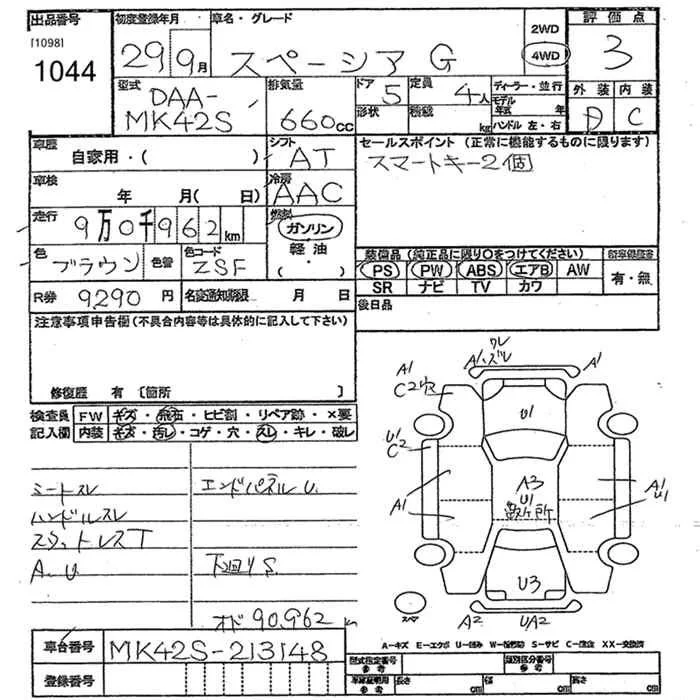 出品番号
[1098]
1044
初度登録年月
29 9月
車名・グレード
スペーシア G
2WD
4WD
評価点
3
型式
DAA-
MK42S
排気量
660cc
ドア
5
形状
定員
4人
積載
kg
ディーラー・並行
モデル
年式 年
ハンドル 左・右
外装 内装
D C
車歴
自家用・( )
シフト
AT
セールスポイント (正常に機能するものに限ります)
スマートキー2個
車検
年 月( 日)
冷房
AAC
走行
9万0千962km
燃料
ガソリン
軽油
・( )
色
ブラウン
色替
色コード
ZSF
装備品(純正品に限り○をつけてください)
PS PW ABS エアB AW
SR ナビ TV カワ
新車保証書
有・無
R券 9290 円
名変通知期限 月 日
後日品
注意事項申告欄(不具合内容等は具体的に記入して下さい)
修復歴 有 〔箇所 〕
検査員
記入欄
FW キズ・飛石・ヒビ割・リペア跡・×要
内装 キズ・汚レ・コゲ・穴・スレ・キレ・破レ
シートスレ
ハンドルスレ
A.U
エンドパネルU.
下回りS
オド90,962 km
ワレ
A1ハズレ
A1
A1
C2
U1
U1
C2
A3
U1
A1
A1
U1
U3
スペア
A2
UA2
A-キズ E-エクボ U-凹み W-板修跡 S-サビ C-腐食 XX-交換済
車台番号
MK42S-213148
登録番号
型式指定番号
参考
類別区分番号
参考
車庫証明用
参考
長さ cm
幅 cm
高さ cm